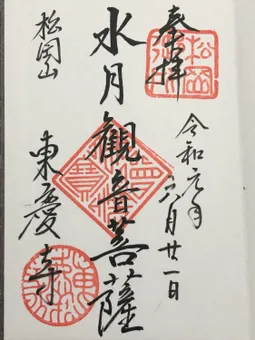 奉拝
令和元年
六月廿一日
水月観音菩薩
松岡山
東慶寺